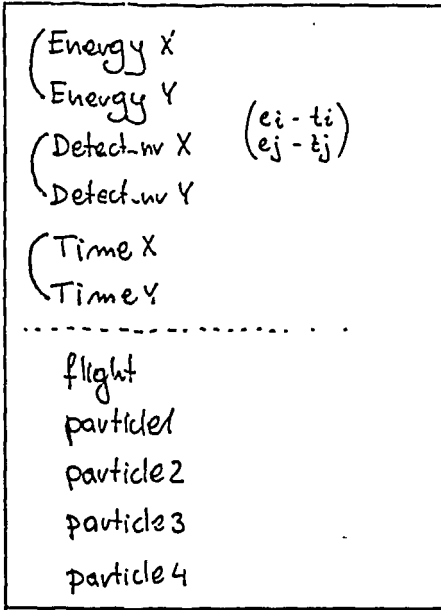 Energy X
Energy Y
(ei - ti)
(ej - tj)
Detect-nr X
Detect-nr Y
Time X
Time Y
flight
particle1
particle2
particle3
particle4